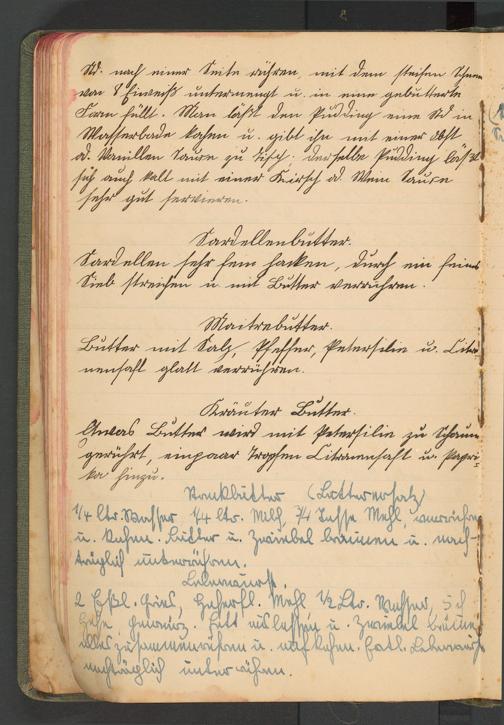 Std. nach einer Seite rühren, mit dem steifen Schnee
von 8 Eiweiß untermengt u. in eine gebutterte
Form füllt. Man läßt den Pudding eine Std in
Wasserbade kochen u. gibt ihn mit einer Obst
od. Vanillen Sauce zu Tisch. Derselbe Pudding läßt
sich auch kalt mit einer Kirsch od. Wein Sauce
sehr gut servieren.
Sardellenbutter.
Sardellen sehr fein hacken, durch ein feines
Sieb streichen u. mit Butter verrühren.
Maitrebutter.
Butter mit Salz, Pfeffer, Petersilie u. Citro-
nensaft glatt verrühren.
Kräuter Butter.
Etwas Butter wird mit Petersilie zu Schaum
gerührt, einpaar Tropfen Citronensaft u. Papri-
ka hinzu.
(Butterersatz)
1/4 ltr. Wasser 1/4 ltr. Milch, 3/4 Tasse Mehl, verrühren
u. kochen. Butter u. Zwiebel bräunen u. nach-
träglich unterrühren.
Leberwurst.
2 Eßl. Gries, Mehl 1/2 Ltr. Wasser,
Fett auslassen u. Zwiebel bräunen
alles zusammenrühren u. aufkochen. Leberwurst
nachträglich unterrühren.